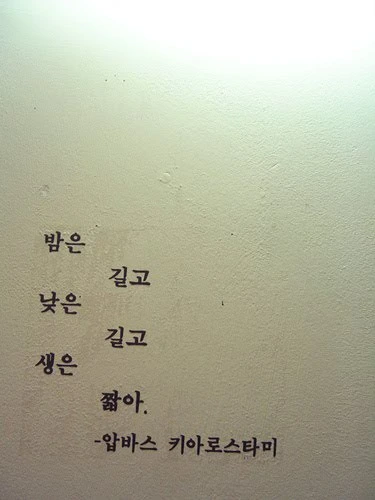 밤은
길고
낮은
길고
생은
짧아.
-압바스 키아로스타미